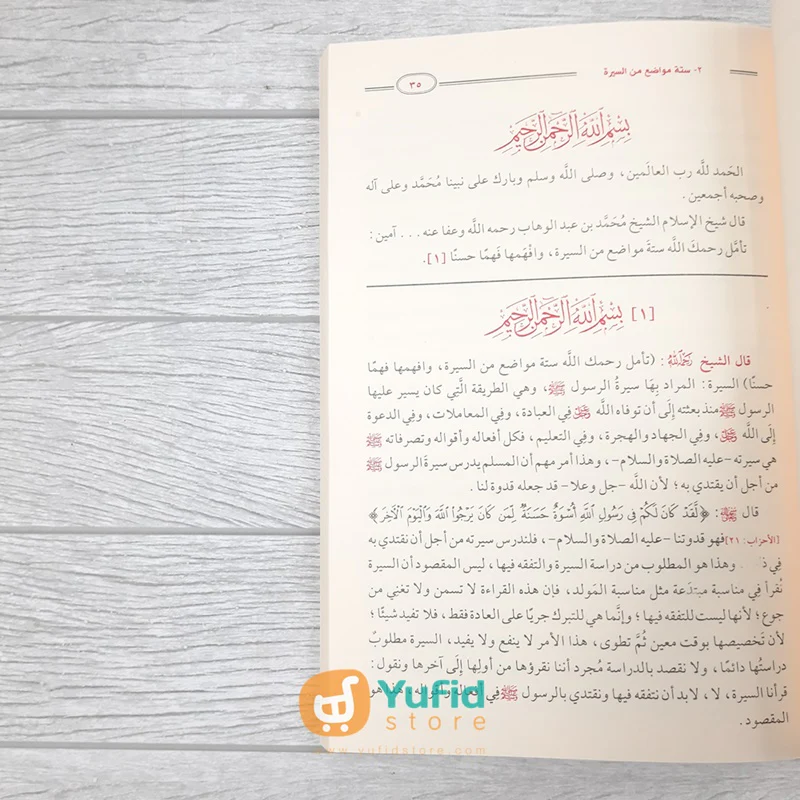 ٢- ستة مواضع من السيرة
٣٥
بِسْمِ اللَّهِ الرَّحْمَنِ الرَّحِيمِ
الحَمد للَّه رب العالَمين، وصلى اللَّه وسلم وبارك على نبينا مُحَمَّد وعلى آله
وصحبه أجمعين.
قال شيخ الإسلام الشيخ مُحَمَّد بن عبد الوهاب رحمه اللَّه وعفا عنه ... آمين:
تأمَّل رحمكَ اللَّه ستةَ مواضع من السيرة، وافْهَمها فَهمًا حسنًا [١].
[١] بِسْمِ اللَّهِ الرَّحْمَنِ الرَّحِيمِ
قال الشيخ رَحِمَهُ اللَّهُ: (تأمل رحمك اللَّه ستة مواضع من السيرة، وافهمها فهمًا
حسنًا) السيرة: المراد بِهَا سيرةُ الرسول ﷺ، وهي الطريقة الَّتِي كان يسير عليها
الرسول ﷺ منذ بعثته إلَى أن توفاه اللَّه ﷻ فِي العبادة، وفِي المعاملات، وفِي الدعوة
إلَى اللَّه ﷻ، وفِي الجهاد والهجرة، وفِي التعليم، فكل أفعاله وأقواله وتصرفاته ﷺ
هي سيرته -عليه الصلاة والسلام-، وهذا أمر مهم أن المسلم يدرس سيرةَ الرسول ﷺ
من أجل أن يقتدي به؛ لأن اللَّه -جل وعلا- قد جعله قدوة لنا.
قال ﷻ: ﴿لَّقَدْ كَانَ لَكُمْ فِي رَسُولِ اللَّهِ أُسْوَةٌ حَسَنَةٌ لِّمَن كَانَ يَرْجُوا اللَّهَ وَالْيَوْمَ الْآخِرَ﴾
[الأحزاب: ٢١] فهو قدوتنا -عليه الصلاة والسلام-، فلندرس سيرته من أجل أن نقتدي به
فِي. وهذا هو المطلوب من دراسة السيرة والتفقه فيها، ليس المقصود أن السيرة
تُقرأ فِي مناسبة مبتدَعة مثل مناسبة المَولد، فإن هذه القراءة لا تسمن ولا تغني من
جوع؛ لأنها ليست للتفقه فيها؛ وإنَّما هي للتبرك جريًا على العادة فقط، فلا تفيد شيئًا؛
لأن تَخصيصها بوقت معين ثُمَّ تطوى، هذا الأمر لا ينفع ولا يفيد، السيرة مطلوبٌ
دراستُها دائمًا، ولا نقصد بالدراسة مُجرد أننا نقرؤها من أولِها إلَى آخرها ونقول:
قرأنا السيرة، لا، لابد أن نتفقه فيها ونقتدي بالرسول ﷺ فِي أفعاله وأقواله، هذا هو
المقصود.
Yufid
store
www.yufidstore.com